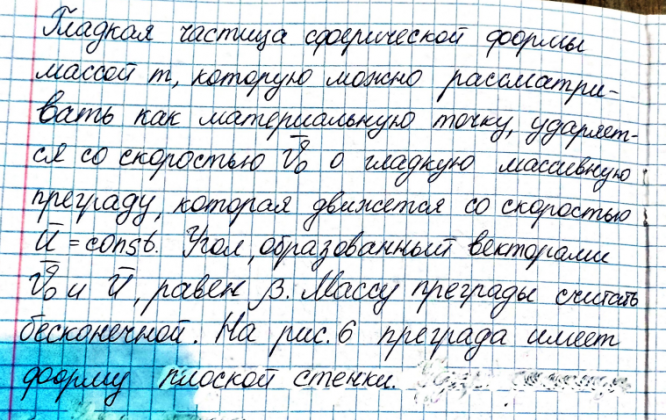 Гладкая частица сферической формы
массой m, которую можно рассматри-
вать как материальную точку, ударяет-
ся со скоростью v̅₀ о гладкую массивную
преграду, которая движется со скоростью
u̅ = const. Угол, образованный векторами
v̅₀ и u̅, равен β. Массу преграды считать
бесконечной. На рис. 6 преграда имеет
форму плоской стенки.